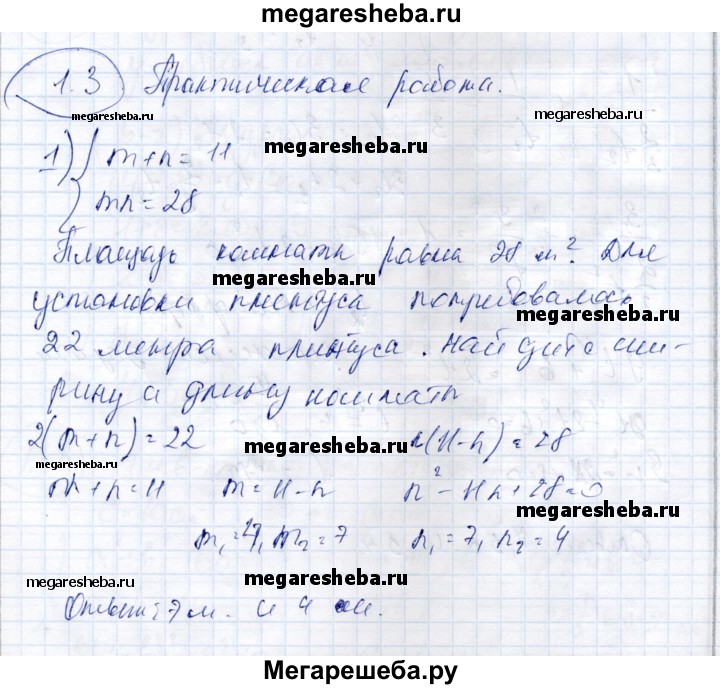 megaresheba.ru
1.3 Практическая работа.
megaresheba.ru megaresheba.ru
megaresheba.ru
1) { m+n=11
mn=28
Площадь комнаты равна 28 м². Для
megaresheba.ru
установки плинтуса потребовалось
megaresheba.ru
22 метра плинтуса. Найдите ши-
рину и длину комнаты
2(m+n)=22 n(11-n)=28
megaresheba.ru
megaresheba.ru
m+n=11 m=11-n n²-11n+28=0
megaresheba.ru
m₁=4, m₂=7 n₁=7, n₂=4
megaresheba.ru megaresheba.ru
Ответ: 7 м. и 4 м.
megaresheba.ru
Мегарешеба.ру